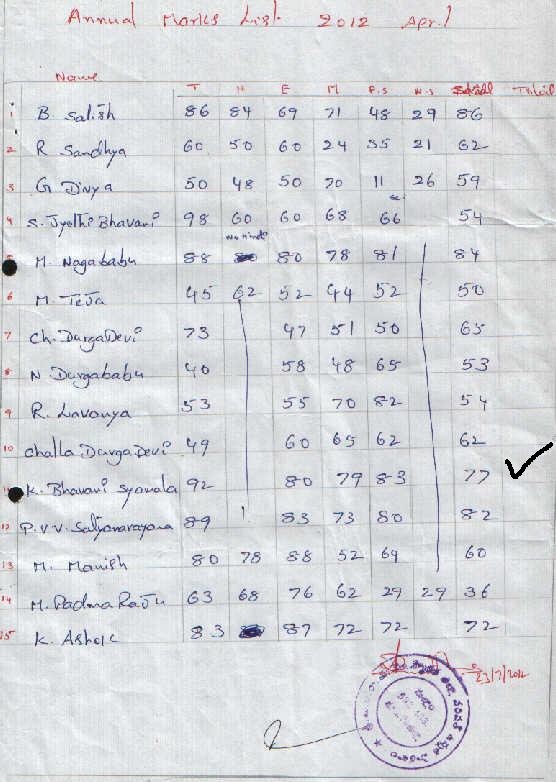 Annual Marks List 2012 April
Name T H E M P.S N.S Social
1 B Satish 86 84 69 71 48 29 86
2 R Sandhya 60 50 60 24 35 21 62
3 G Divya 50 48 50 70 11 26 59
4 S. Jyothi Bhavani 98 60 60 68 66 54
5 M. Nagababu 88 80 78 81 84
6 M. Teja 45 62 52 44 52 50
7 Ch. Durga Devi 73 47 51 50 65
8 N Durgababu 40 58 48 65 53
9 R. Lavanya 53 55 70 82 54
10 Challa Durga Devi 49 60 65 62 62
11 K. Bhavani Syamala 92 80 79 83 77
12 P.V.V. Satyanarayana 89 83 73 80 82
13 M. Manish 80 78 88 52 69 60
14 M. Padma Raju 63 68 76 62 29 29 36
15 K. Ashok 83 87 72 72 72
23/7/2012